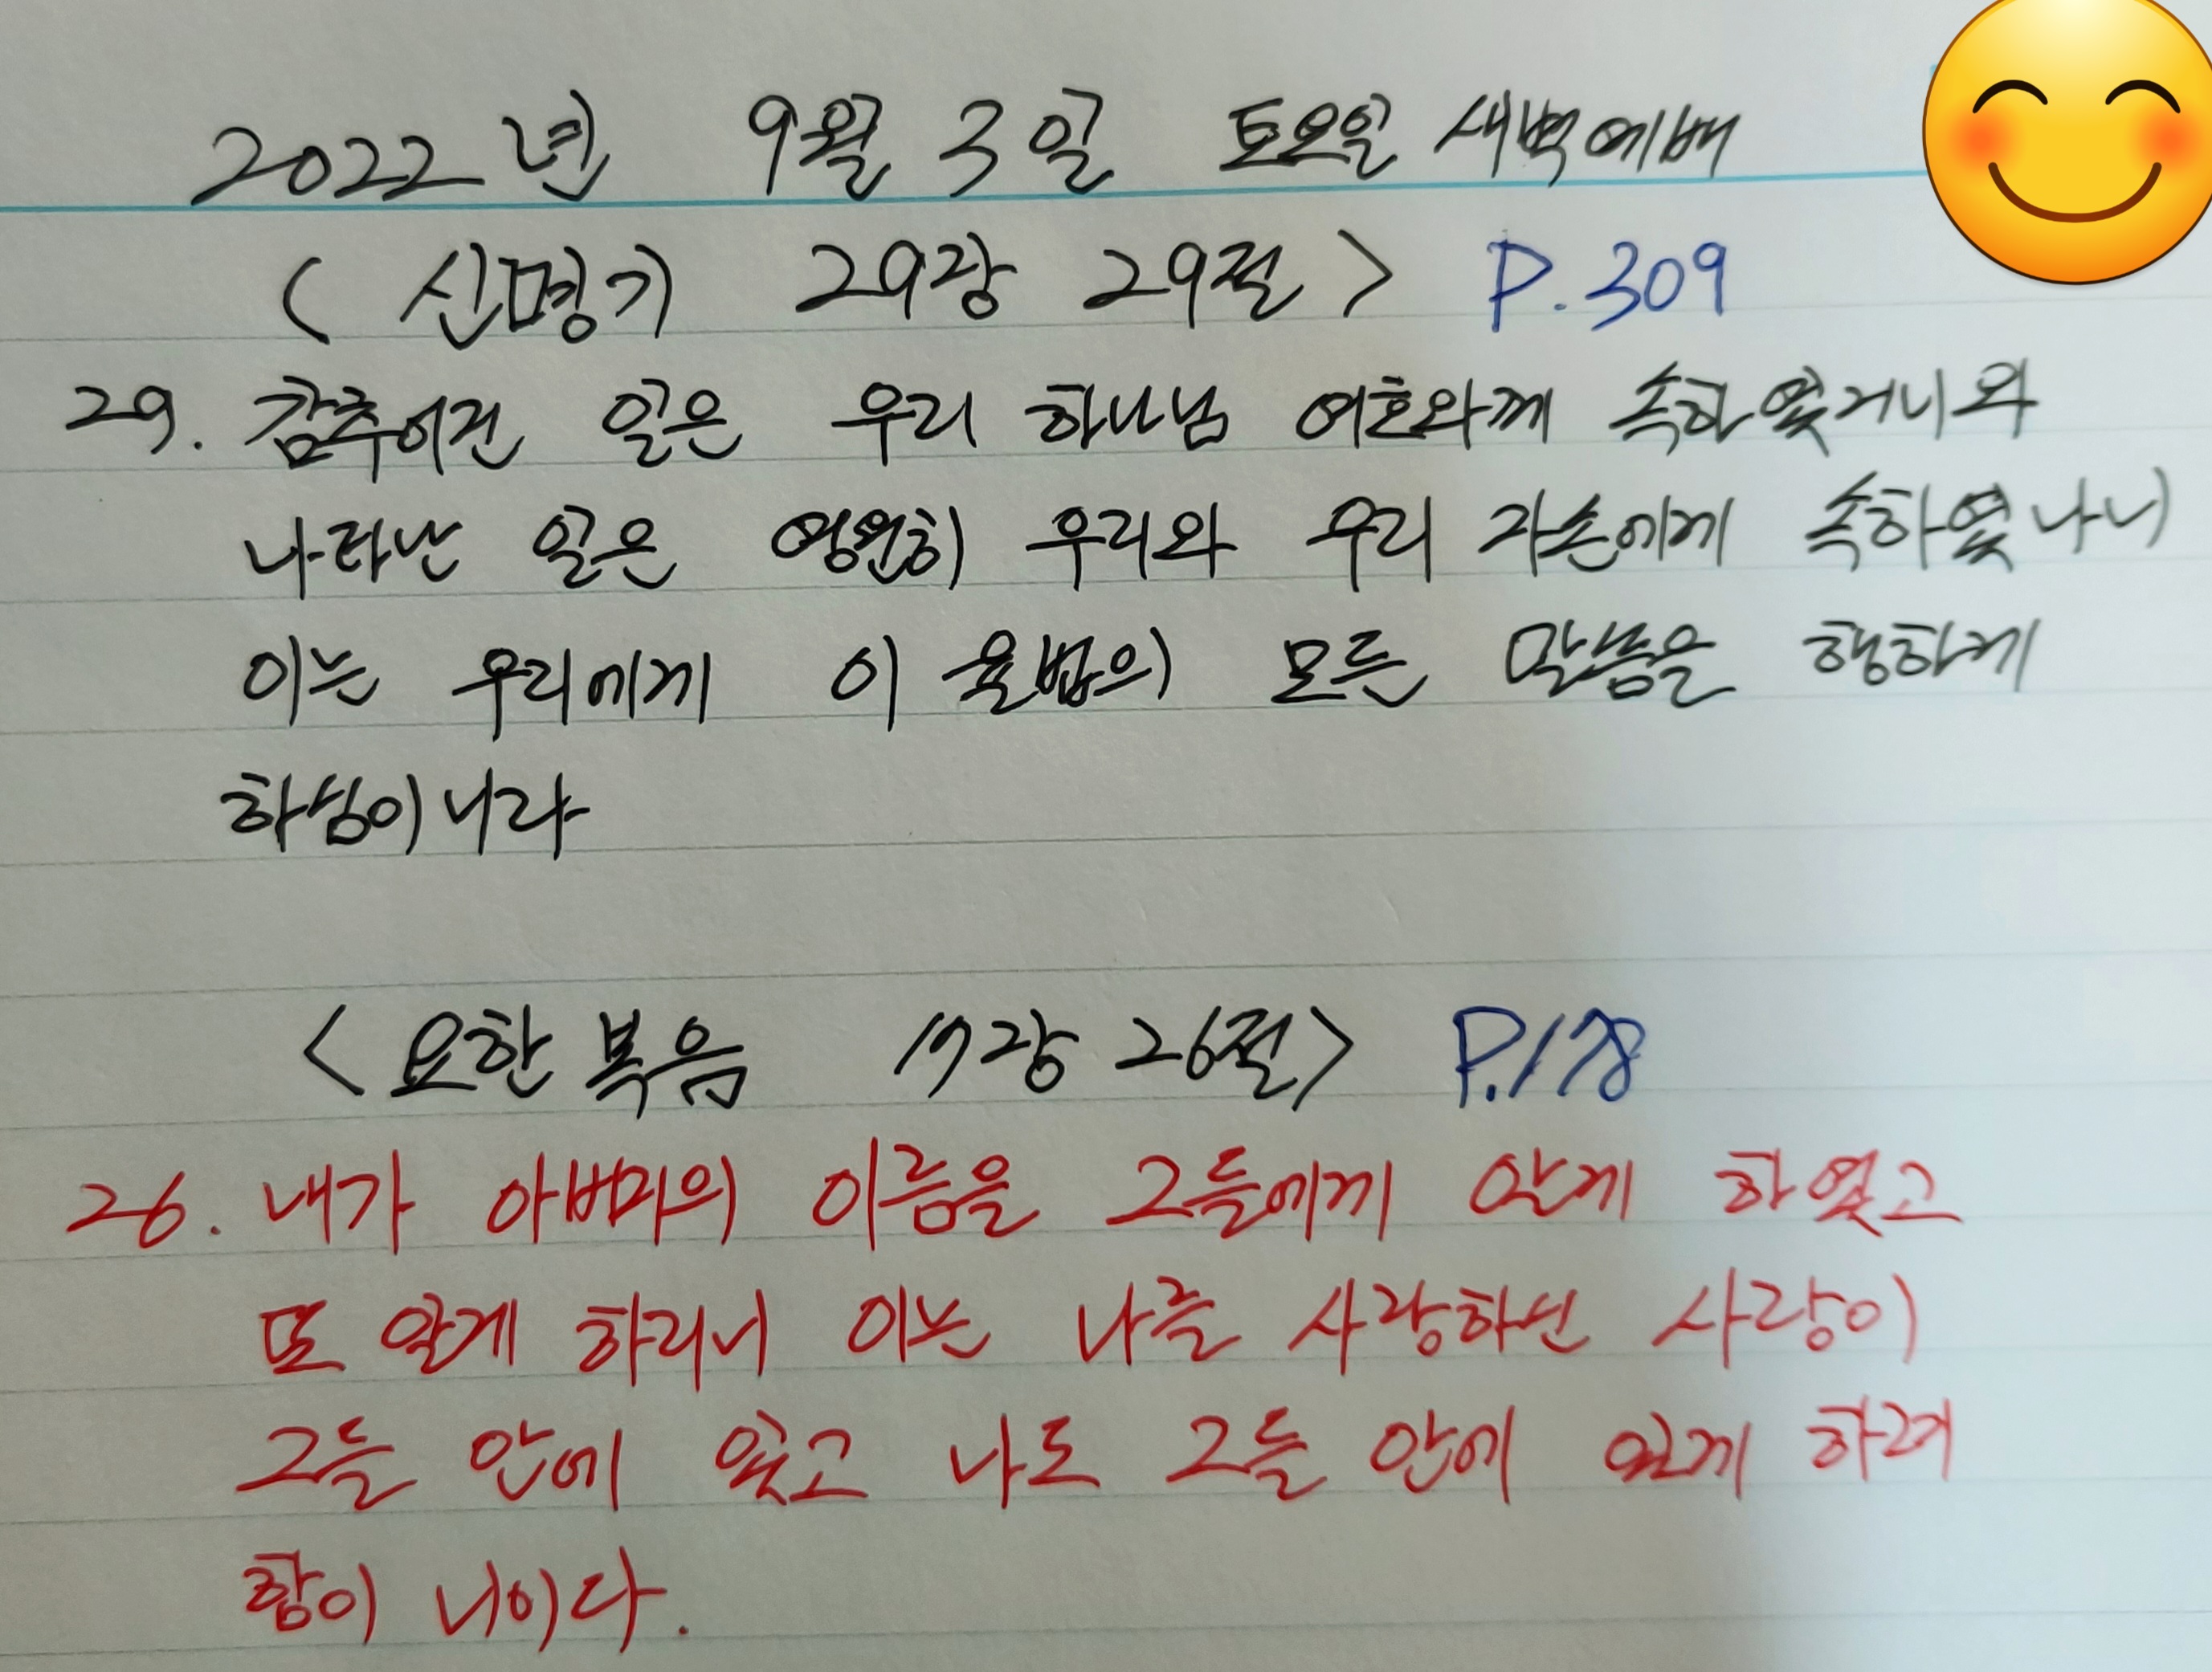 2022년 9월 3일 토요일 새벽예배
< 신명기 29장 29절 > P.309
29. 감추어진 일은 우리 하나님 여호와께 속하였거니와
나타난 일은 영원히 우리와 우리 자손에게 속하였나니
이는 우리에게 이 율법의 모든 말씀을 행하게
하심이니라
< 요한복음 17장 26절> P.178
26. 내가 아버지의 이름을 그들에게 알게 하였고
또 알게 하리니 이는 나를 사랑하신 사랑이
그들 안에 있고 나도 그들 안에 있게 하려
함이 니이다.